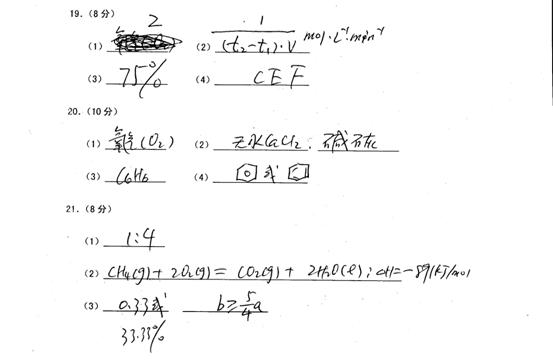 19. (8分)
(1) 2 (2) 1/((t₂-t₁)·V) mol·L⁻¹·min⁻¹
(3) 75% (4) CEF
20. (10分)
(1) 氧气(O₂) (2) 无水CaCl₂. 碱石灰
(3) C₆H₆ (4) 或
21. (8分)
(1) 1:4
(2) CH₄(g) + 2O₂(g) = CO₂(g) + 2H₂O(l); ΔH=-891kJ/mol
(3) 0.33或 b≥5/4a
33.33%